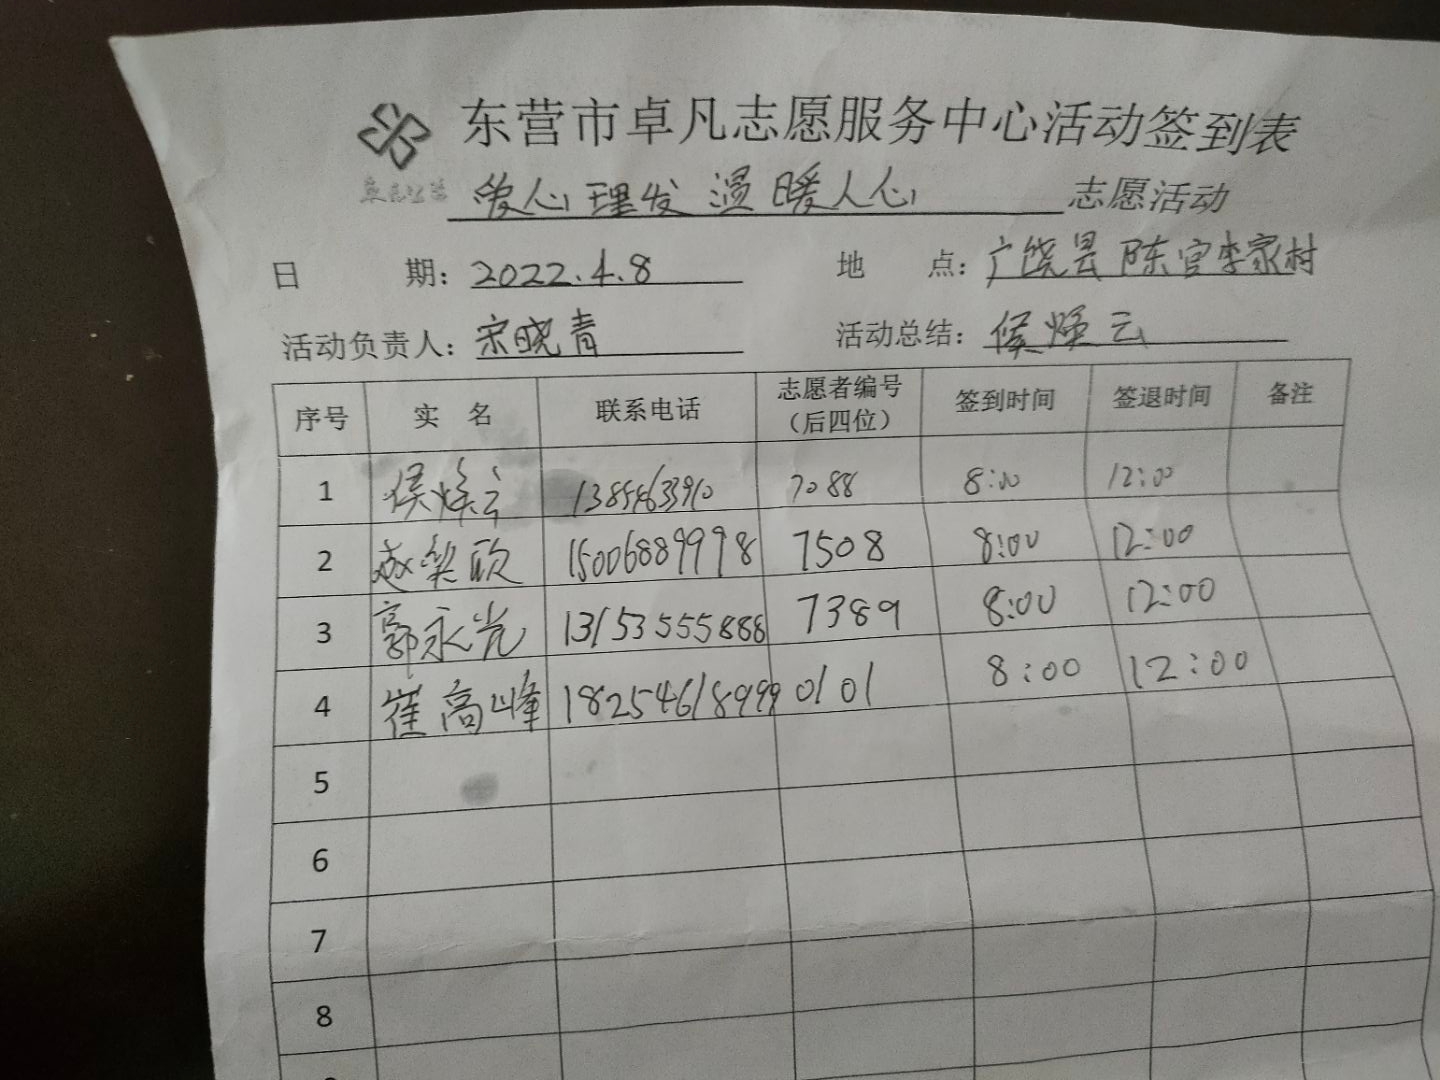 东营市卓凡志愿服务中心活动签到表
爱心理发 温暖人心 志愿活动
日 期：2022.4.8 地 点：广饶县陈官李家村
活动负责人：宋晓青 活动总结：侯焕云
序号 实 名 联系电话 志愿者编号（后四位） 签到时间 签退时间 备注
1 侯焕云 13854633910 7088 8:00 12:00
2 赵 欣 15006889998 7508 8:00 12:00
3 郭永光 13153555888 7389 8:00 12:00
4 崔高峰 18254618999 0101 8:00 12:00
5
6
7
8